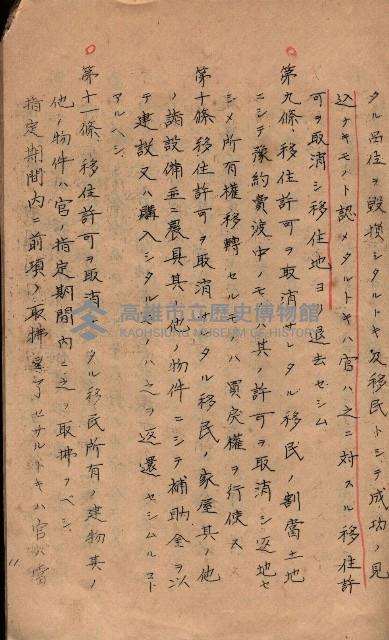 タル品位ヲ毀損シタルトキ及移民トシテ成功ノ見
込ナキモノト認メタルトキハ官ハ之ニ対スル移住許
可ヲ取消シ移住地ヨリ退去セシム
第九條、移住許可ヲ取消シタル移民ノ割當土地
ニシテ豫約賣渡中ノモノハ其ノ許可ヲ取消シ返地セ
シメ所有權移轉セルモノハ買戻權ヲ行使ス
第十條、移住許可ヲ取消シタル移民ノ家屋其ノ他
ノ諸設備並ニ農具其ノ他ノ物件ニシテ補助金ヲ以
テ建設又ハ購入シタルモノハ之ヲ返還セシムルコト
アルヘシ
第十一條、移住許可ヲ取消シタル移民所有ノ建物其ノ
他ノ物件ハ官ノ指定期間内ニ之ヲ取拂フヘシ
指定期間内ニ前項ノ取拂ヲ完了セサルトキハ官ハ
高雄市立歷史博物館
KAOHSIUNG MUSEUM OF HISTORY